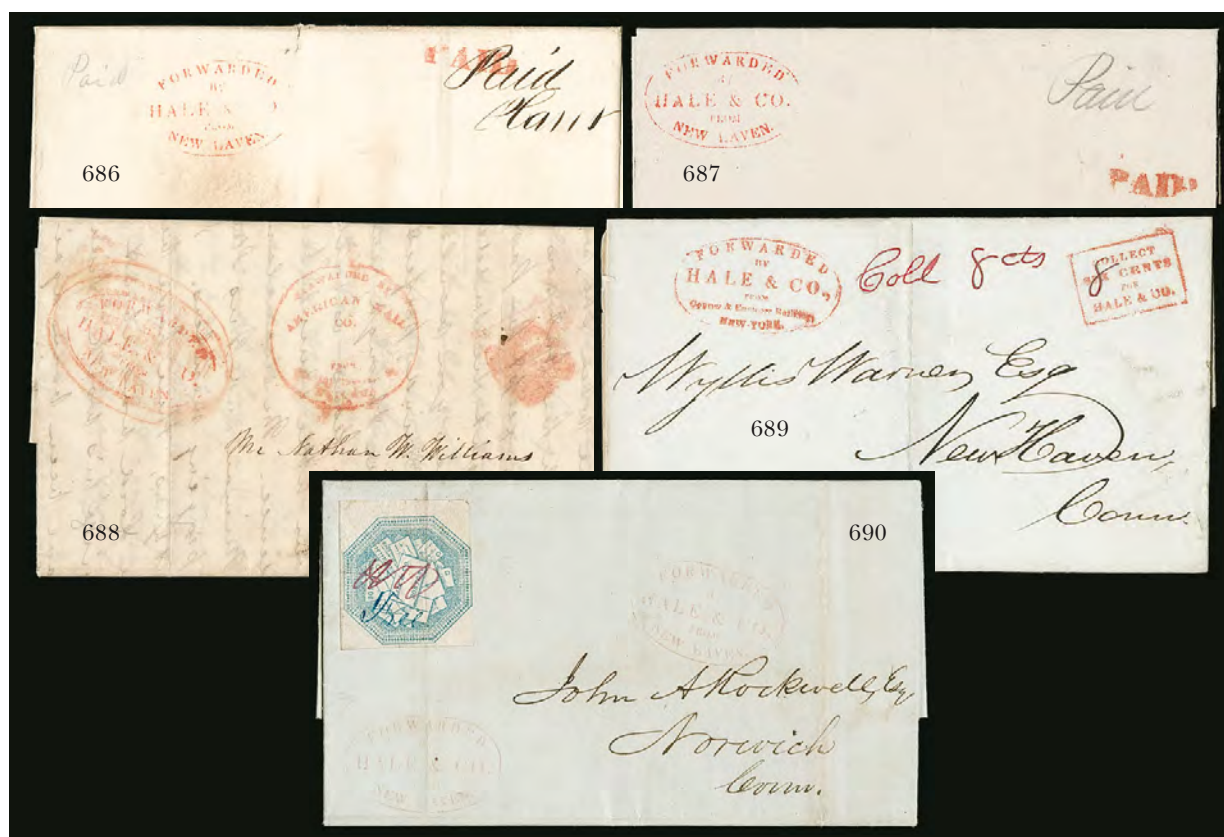 Paid
FORWARDED
BY
HALE & CO.
FROM
NEW HAVEN.
PAID
Paid
686
FORWARDED
BY
HALE & CO.
FROM
NEW HAVEN.
Paid
PAID
687
FORWARDED
HALE & CO.
NEW HAVEN.
FORWARDED BY
AMERICAN MAIL
CO.
FROM
Mr Nathan W. Williams
688
FORWARDED
BY
HALE & CO.,
FROM
NEW-YORK.
Coll 8 cts
COLLECT
SIX CENTS
FOR
HALE & CO.
8
Wyllis Warner Esq
689
New Haven,
Conn.
690
FORWARDED
BY
HALE & CO.
FROM
NEW HAVEN.
John A Rockwell, Esq
Norwich
Conn.
FORWARDED
HALE & CO.
NEW HAVEN